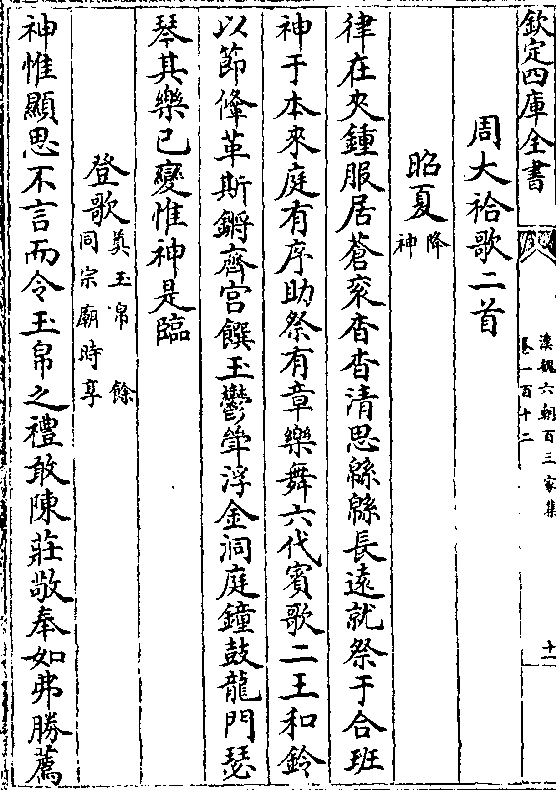 欽定四庫全書
漢魏六朝百三家集
卷一百十二
十一
周大祫歌二首
昭夏降神
律在夾鍾服居蒼衮杳杳清思緜緜長遠就祭于合班
神于本來庭有序助祭有章樂舞六代賓歌二王和鈴
以節鞗革斯鏘齊宫饌玉鬱斝浮金洞庭鐘鼓龍門瑟
琴其樂已變惟神是臨
登歌奠玉帛餘同宗廟時享
神惟顯思不言而令玉帛之禮敢陳莊敬奉如弗勝薦